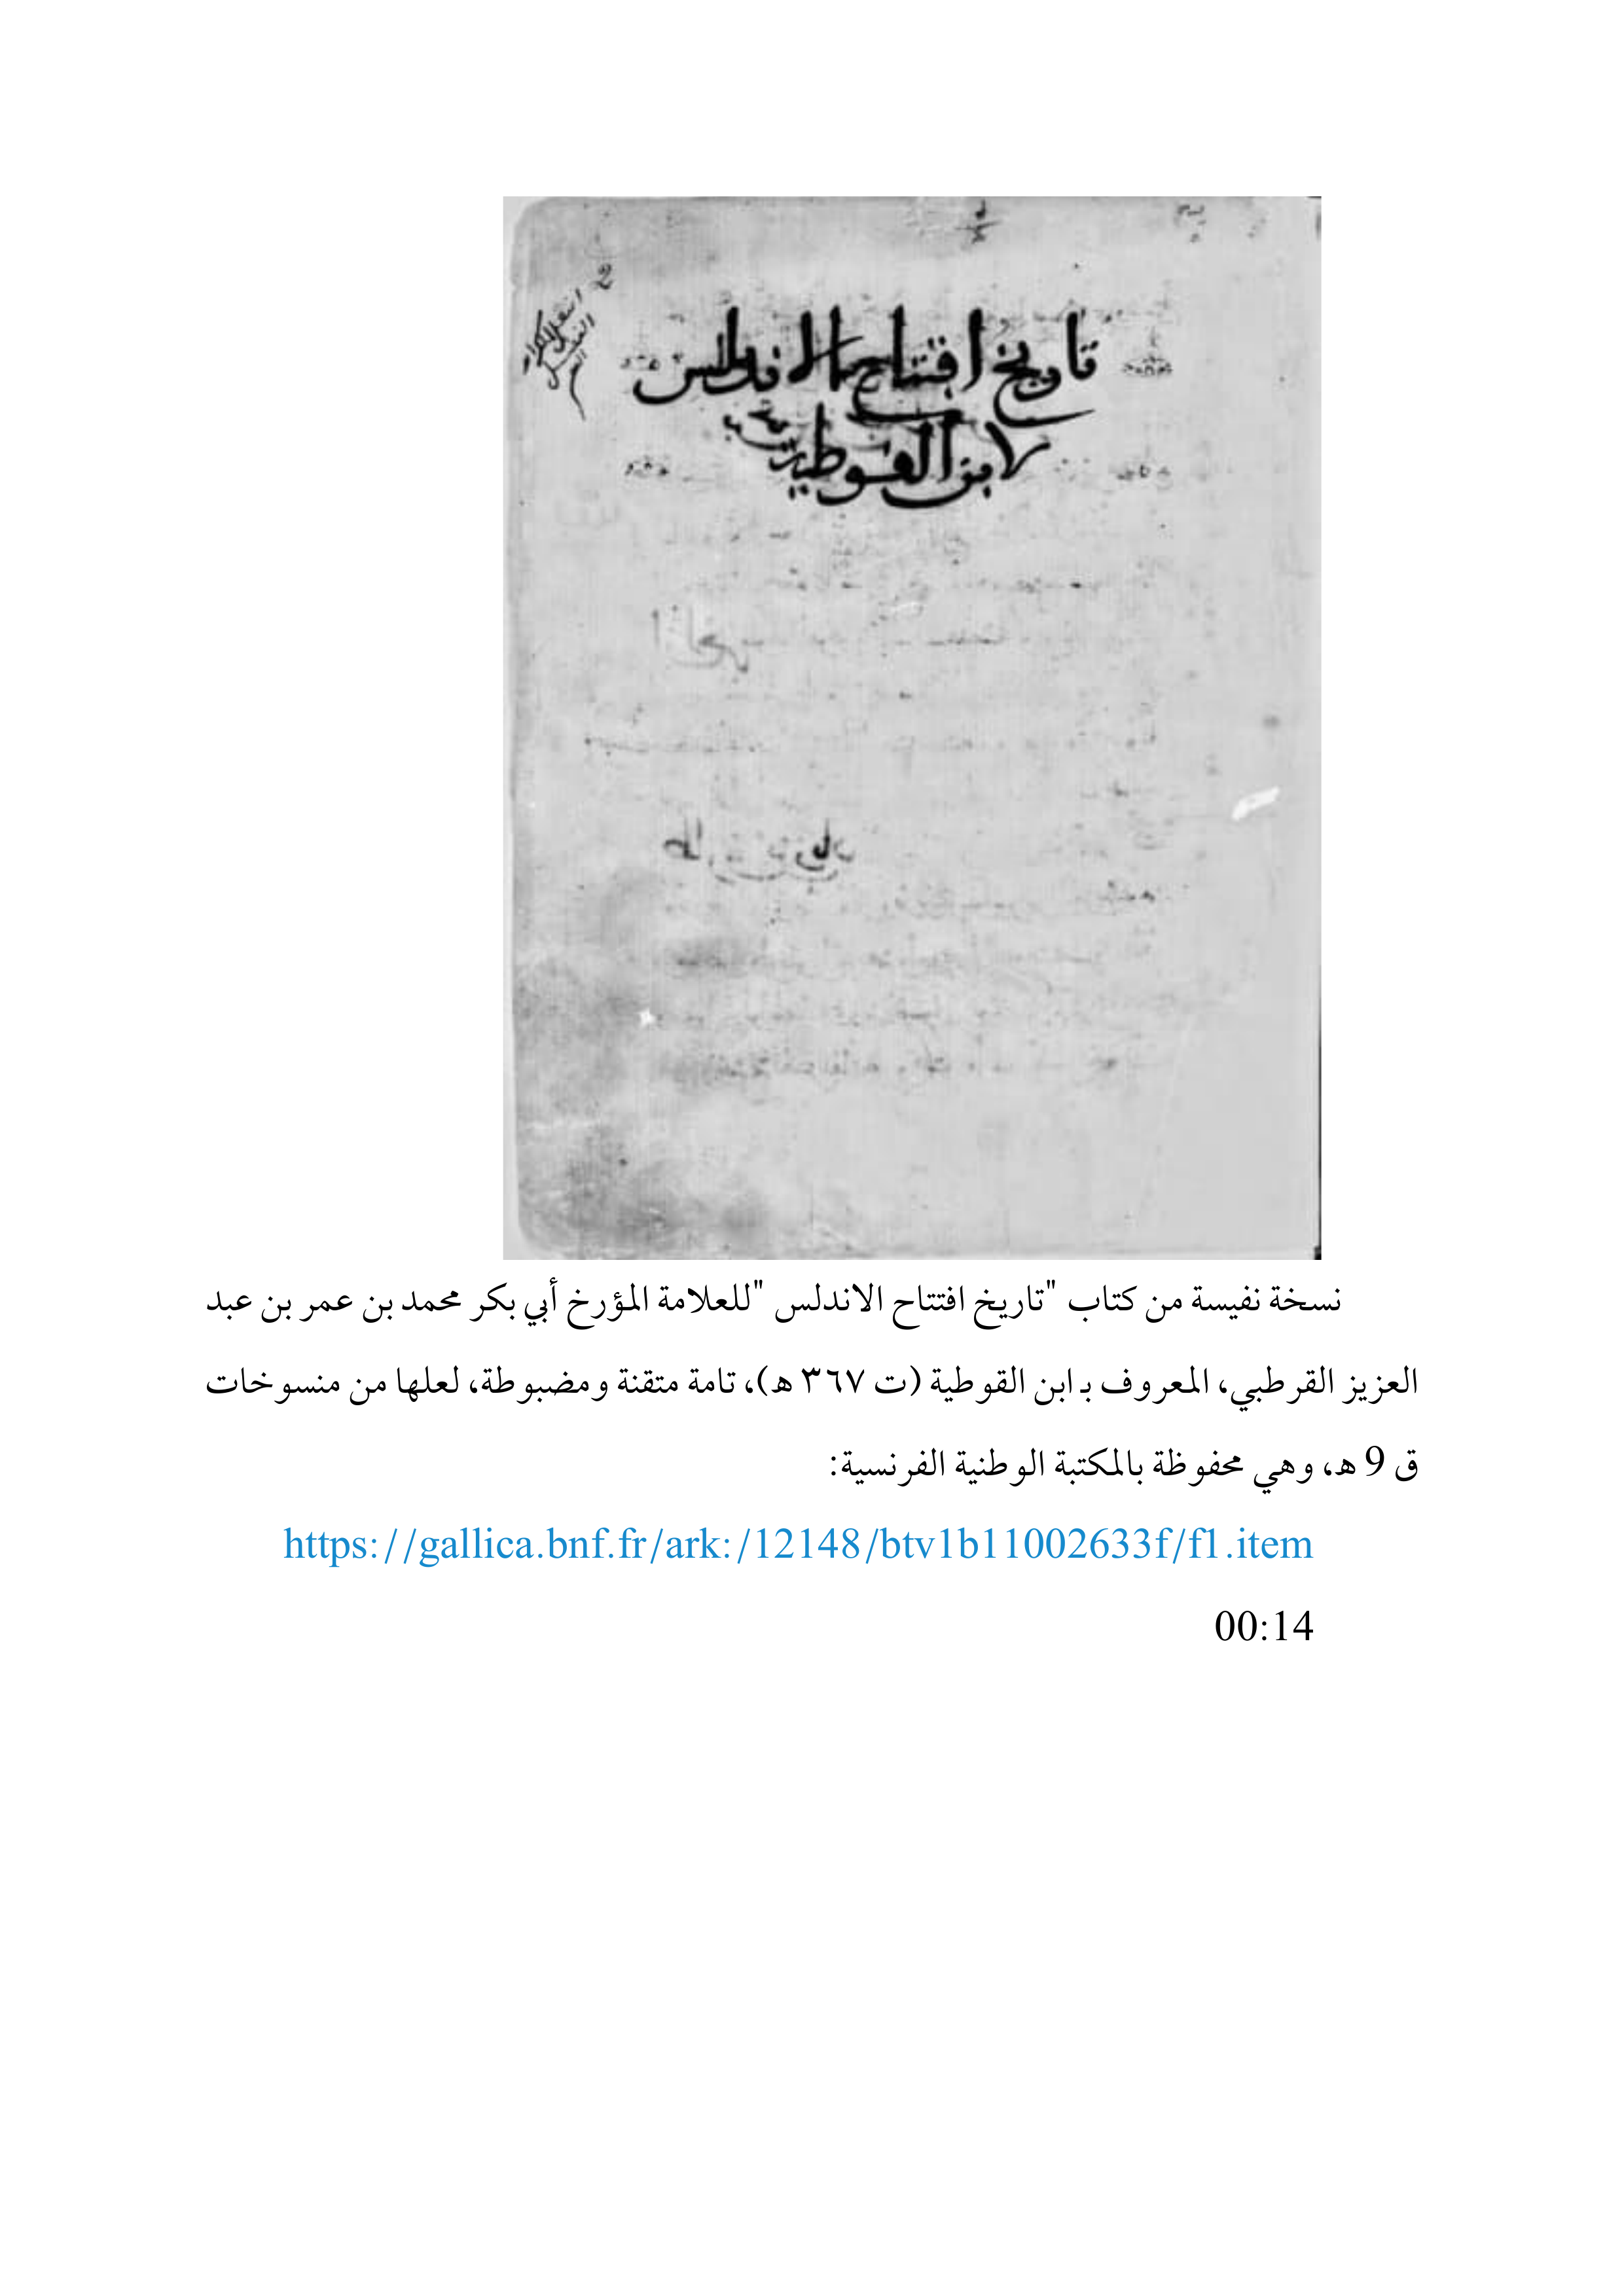 2
تاريخ افتتاح الاندلس
لابن القوطية
نسخة نفيسة من كتاب "تاريخ افتتاح الاندلس "للعلامة المؤرخ أبي بكر محمد بن عمر بن عبد
العزيز القرطبي، المعروف بـ ابن القوطية (ت ٣٦٧ هـ)، تامة متقنة ومضبوطة، لعلها من منسوخات
ق 9 هـ، وهي محفوظة بالمكتبة الوطنية الفرنسية:
https://gallica.bnf.fr/ark:/12148/btv1b11002633f/f1.item
00:14